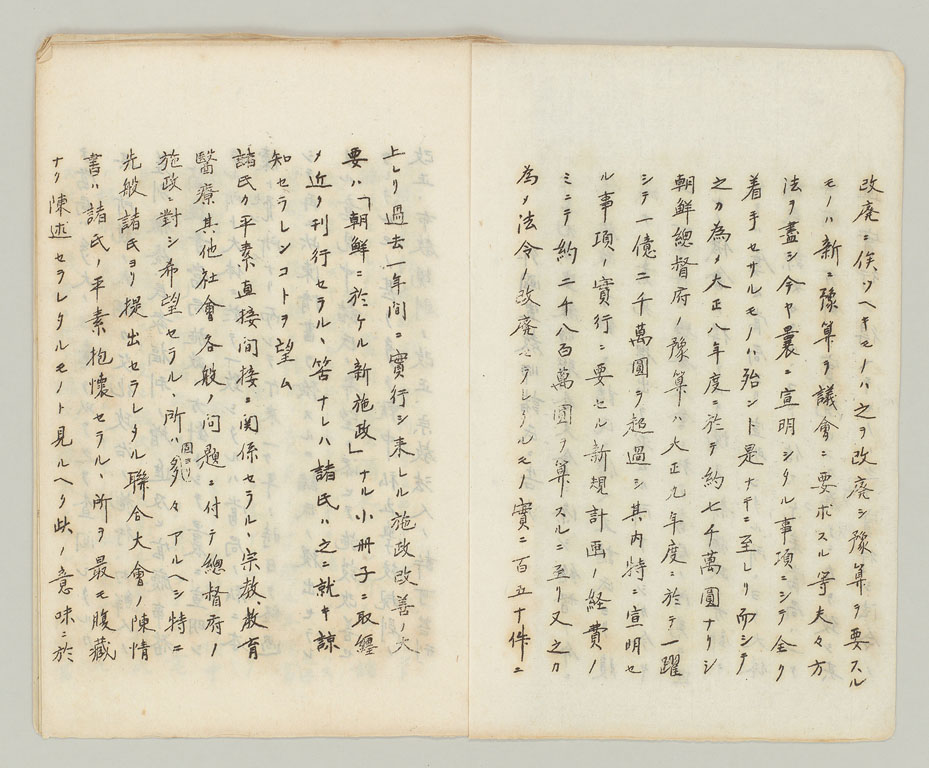 改廢ニ俟ツヘキモノハ之ヲ改廢シ豫算ヲ要スル
モノハ新ニ豫算ヲ議會ニ要ボスル等夫々方
法ヲ盡シ今ヤ曩ニ宣明シタル事項ニシテ全ク
着手セサルモノハ殆ント是ナキニ至レリ而シテ
之カ為メ大正八年度ニ於テ約七千萬圓ナリシ
朝鮮總督府ノ豫算ハ大正九年度ニ於テ一躍
シテ一億二千萬圓ヲ超過シ其内特ニ宣明セ
ル事項ノ實行ニ要セル新規計画ノ経費ノ
ミニテ約二千八百萬圓ヲ算スルニ至リ又之カ
為メ法令ノ改廢セラレタルモノ實ニ百五十件ニ
上レリ過去一年間ニ實行シ来レル施政改善ノ大
要ハ「朝鮮ニ於ケル新施政」ナル小冊子ニ取纒
メ近ク刊行セラルヽ筈ナレハ諸氏ハ之ニ就キ諒
知セラレンコトヲ望ム
諸氏カ平素直接間接ニ関係セラルヽ宗教、教育
醫療其他社會各般ノ問題ニ付テ總督府ノ
施政ニ對シ希望セラルヽ所ハ固ヨリ多々アルヘシ特ニ
先般諸氏ヨリ提出セラレタル聯合大會ノ陳情
書ハ諸氏ノ平素抱懐セラルヽ所ヲ最モ腹藏
ナク陳述セラレタルモノト見ルヘク此ノ意味ニ於